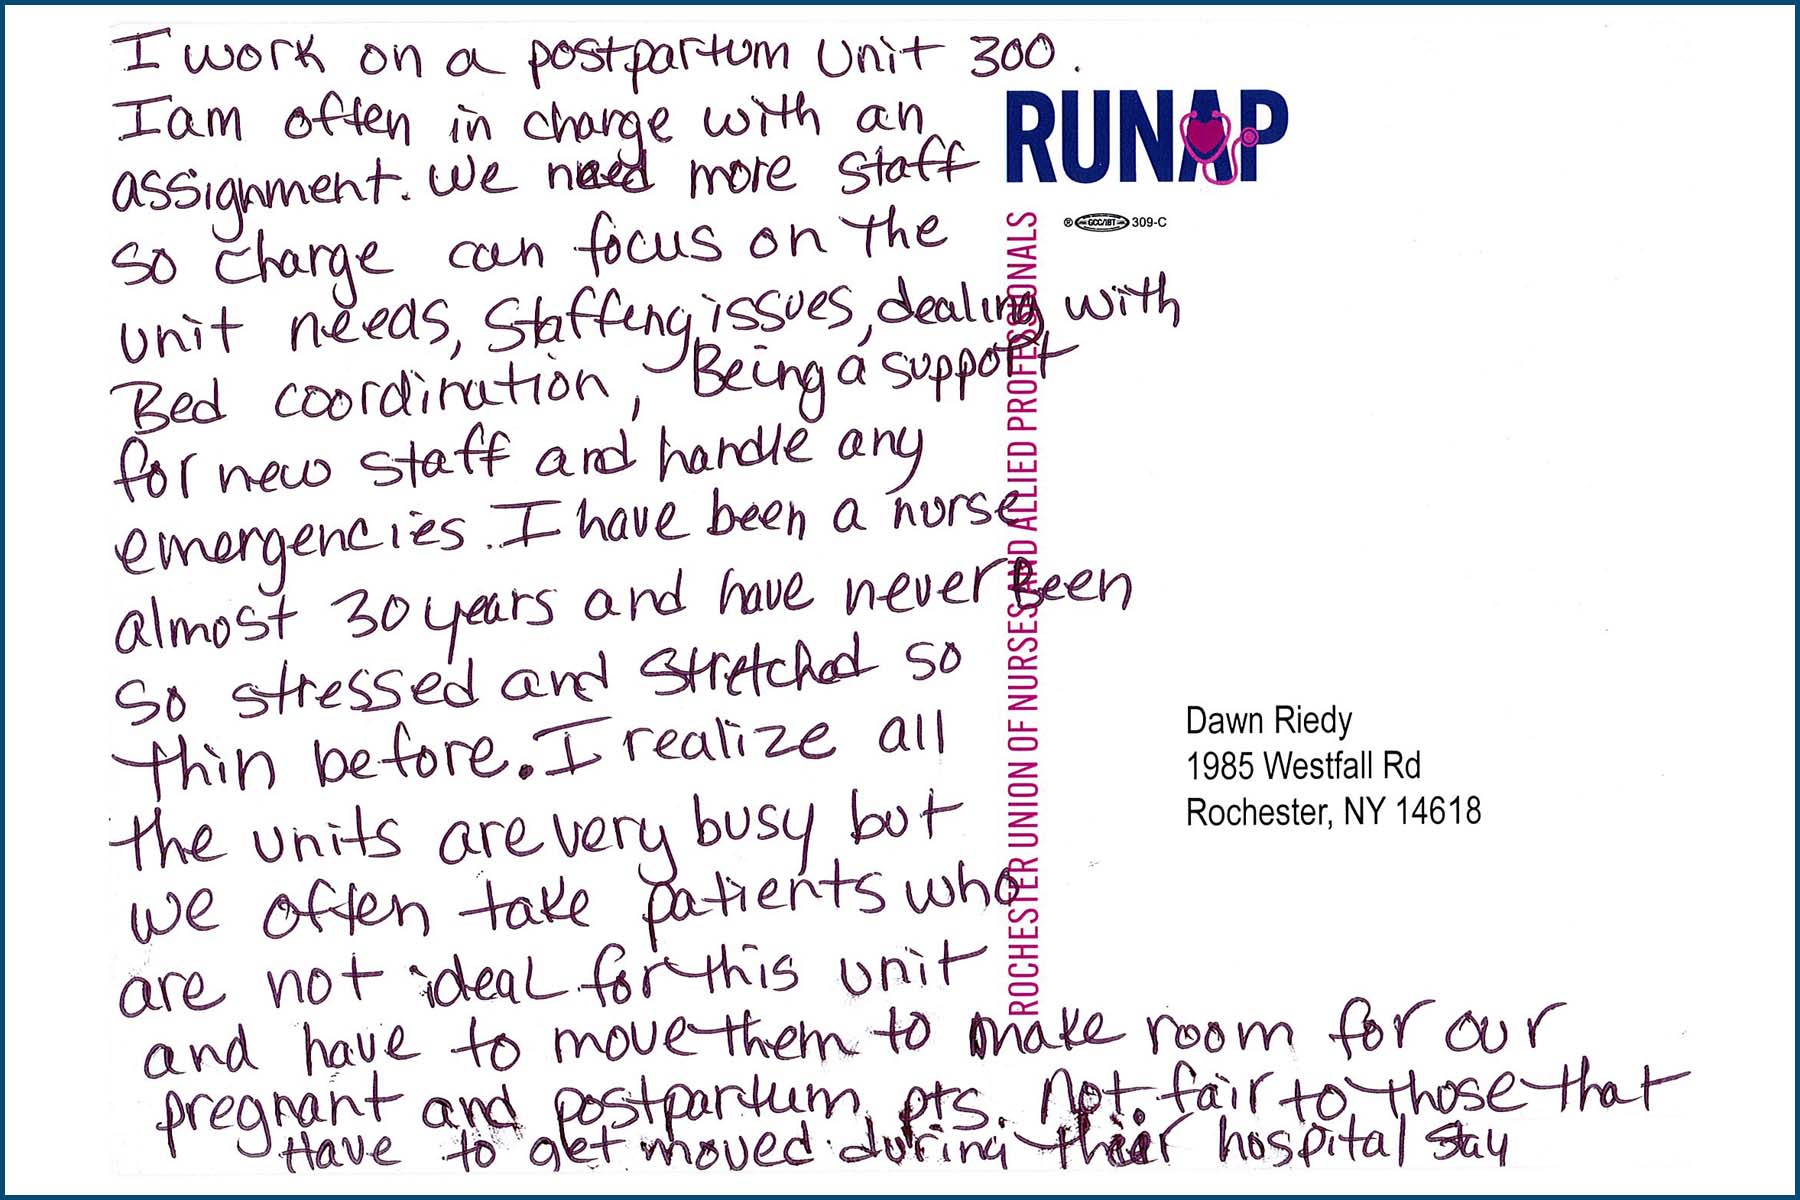 I work on a postpartum Unit 300.
I am often in charge with an
assignment. We need more staff
so charge can focus on the
unit needs, Staffeng issues, dealing with
Bed coordination, Being a support
for new staff and handle any
emergencies. I have been a nurse
almost 30 years and have never Been
so stressed and stretched so
thin before. I realize all
the units are very busy but
we often take patients who
are not ideal for this unit
and have to move them to make room for our
pregnant and postpartum pts. Not fair to those that
Have to get moved during their hospital stay
RUNAP
® GCC/IBT 309-C
ROCHESTER UNION OF NURSES AND ALLIED PROFESSIONALS
Dawn Riedy
1985 Westfall Rd
Rochester, NY 14618